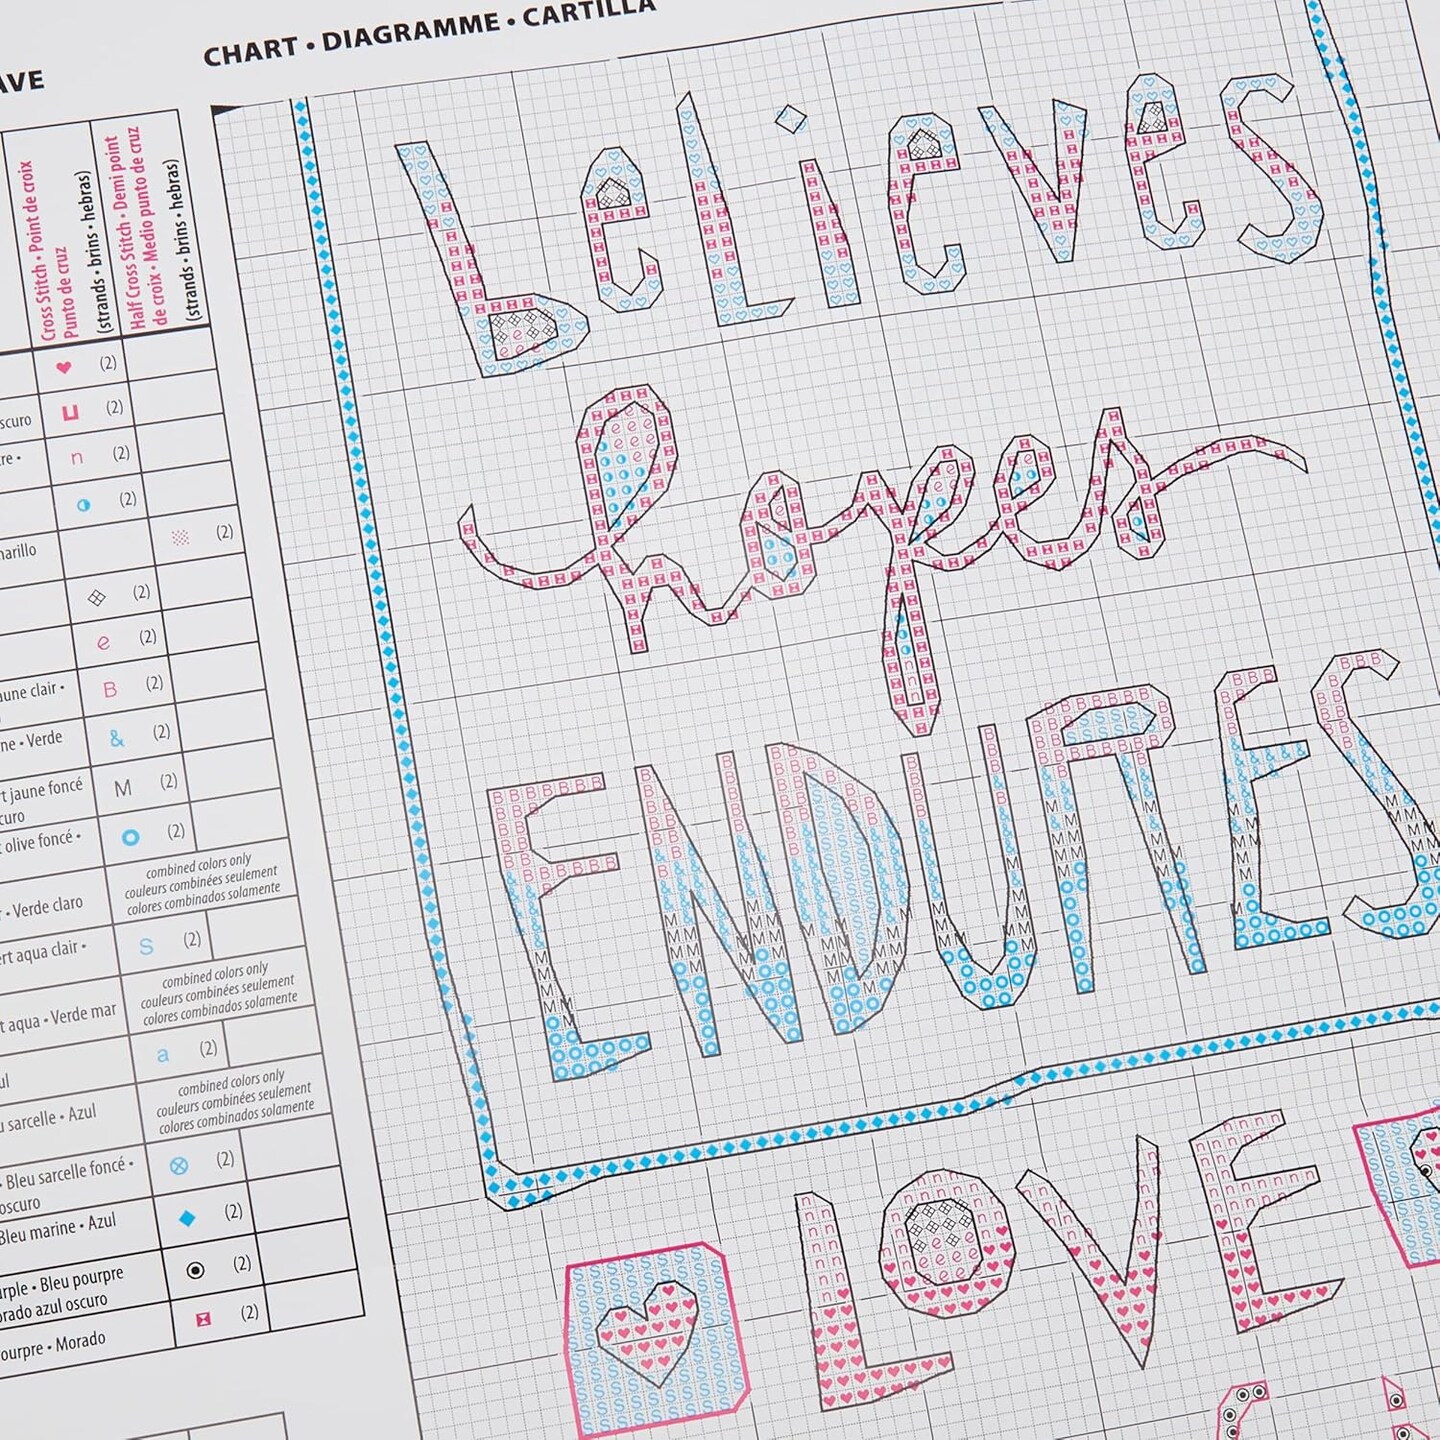 CHART • DIAGRAMME • CARTILLA
Cross Stitch • Point de croix
Punto de cruz
(strands • brins • hebras)
Half Cross Stitch • Demi point
de croix • Medio punto de cruz
(strands • brins • hebras)
(2)
(2)
n (2)
(2)
(2)
(2)
e (2)
aune clair • B (2)
ne • Verde & (2)
rt jaune foncé M (2)
t olive foncé • (2)
combined colors only
couleurs combinées seulement
colores combinados solamente
• Verde claro
ert aqua clair • S (2)
combined colors only
couleurs combinées seulement
colores combinados solamente
t aqua • Verde mar
a (2)
combined colors only
couleurs combinées seulement
colores combinados solamente
u sarcelle • Azul
• Bleu sarcelle foncé • (2)
oscuro
Bleu marine • Azul (2)
rple • Bleu pourpre (2)
orado azul oscuro
ourpre • Morado (2)
beLieves
hopes
ENDURES
LOVE